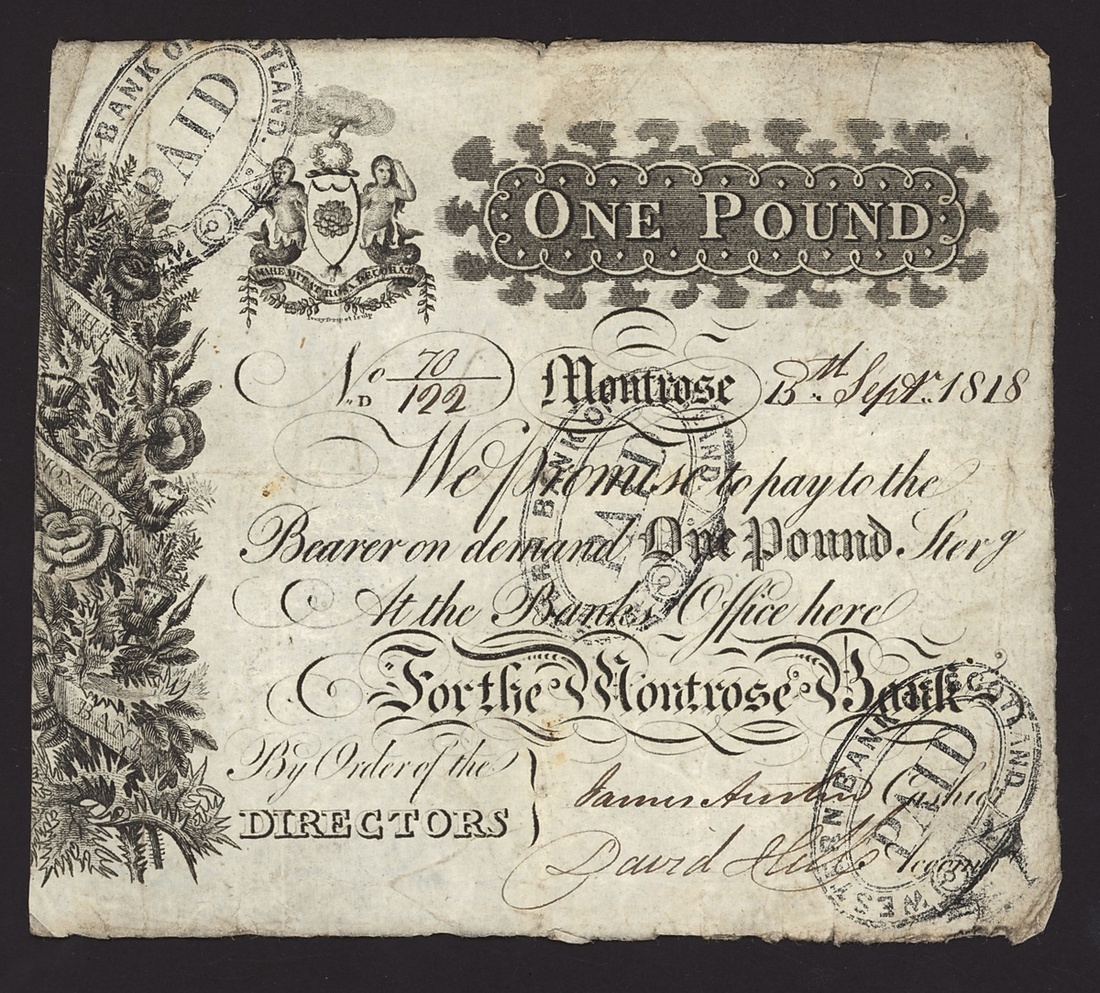 BANK OF SCOTLAND.
PAID
MARE DITAT ROSA DECORAT
ONE POUND
No 70
D 122
Montrose 13th Septr. 1818
We Promise to pay to the
Bearer on demand One Pound Sterg
At the Banks Office here
For the Montrose Bank
By Order of the
DIRECTORS
James
Cashier
David
Accomt
THE
MONTROSE
BANK
BANK OF
PAID
WESTERN BANK OF SCOTLAND
PAID